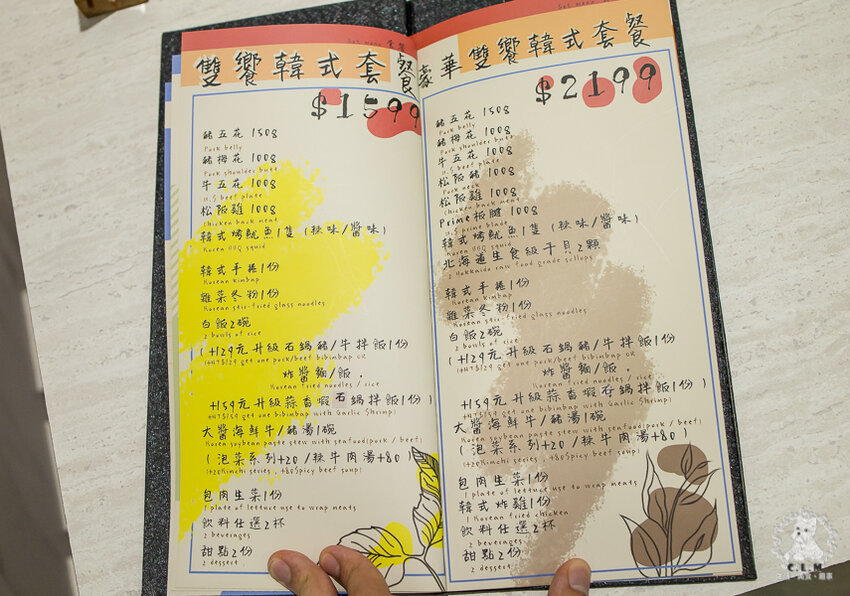 Set menu 套餐
雙饗韓式套餐
$1599
豬五花 150g
Pork belly
豬梅花 100g
Pork shoulder butt
牛五花 100g
U.S beef plate
松阪雞 100g
Chicken back meat
韓式烤魷魚1隻 (辣味/醬味)
Korean BBQ squid
韓式手捲1份
Korean kimbap
雜菜冬粉1份
Korean stir-fried glass noodles
白飯2碗
2 bowls of rice
(+129元升級石鍋豬/牛拌飯1份
(+NT$129 get one pork/beef bibimbap OR
炸醬麵/飯.
Korean fried noodles / rice
+159元升級蒜香蝦石鍋拌飯1份)
+NT$159 get one bibimbap with Garlic Shrimp)
大醬海鮮牛/豬湯1碗
Korea soybean paste stew with seafood(pork / beef)
(泡菜系列+20/辣牛肉湯+80)
(+20Kimchi series , +80Spicy beef soup)
包肉生菜1份
1 plate of lettuce use to wrap meats
飲料任選2杯
2 beverages
甜點2份
2 dessert
Set menu
豪華雙饗韓式套餐
$2199
豬五花 150g
Pork belly
豬梅花 100g
Pork shoulder butt
牛五花 100g
U.S beef plate
松阪豬 100g
Pork neck
松阪雞 100g
Chicken back meat
Prime板腱 100g
U.S prime blade
韓式烤魷魚1隻 (辣味/醬味)
Korean BBQ squid
北海道生食級干貝2顆
2 Hokkaido raw food grade scallops
韓式手捲1份
Korean kimbap
雜菜冬粉1份
Korean stir-fried glass noodles
白飯2碗
2 bowls of rice
(+129元升級石鍋豬/牛拌飯1份
(+NT$129 get one pork/beef bibimbap OR
炸醬麵/飯.
Korean fried noodles / rice
+159元升級蒜香蝦石鍋拌飯1份)
+NT$159 get one bibimbap with Garlic Shrimp)
大醬海鮮牛/豬湯1碗
Korea soybean paste stew with seafood(pork / beef)
(泡菜系列+20/辣牛肉湯+80)
(+20Kimchi series , +80Spicy beef soup)
包肉生菜1份
1 plate of lettuce use to wrap meats
韓式炸雞1份
1 Korean fried chicken
飲料任選2杯
2 beverages
甜點2份
2 dessert
C.L.M